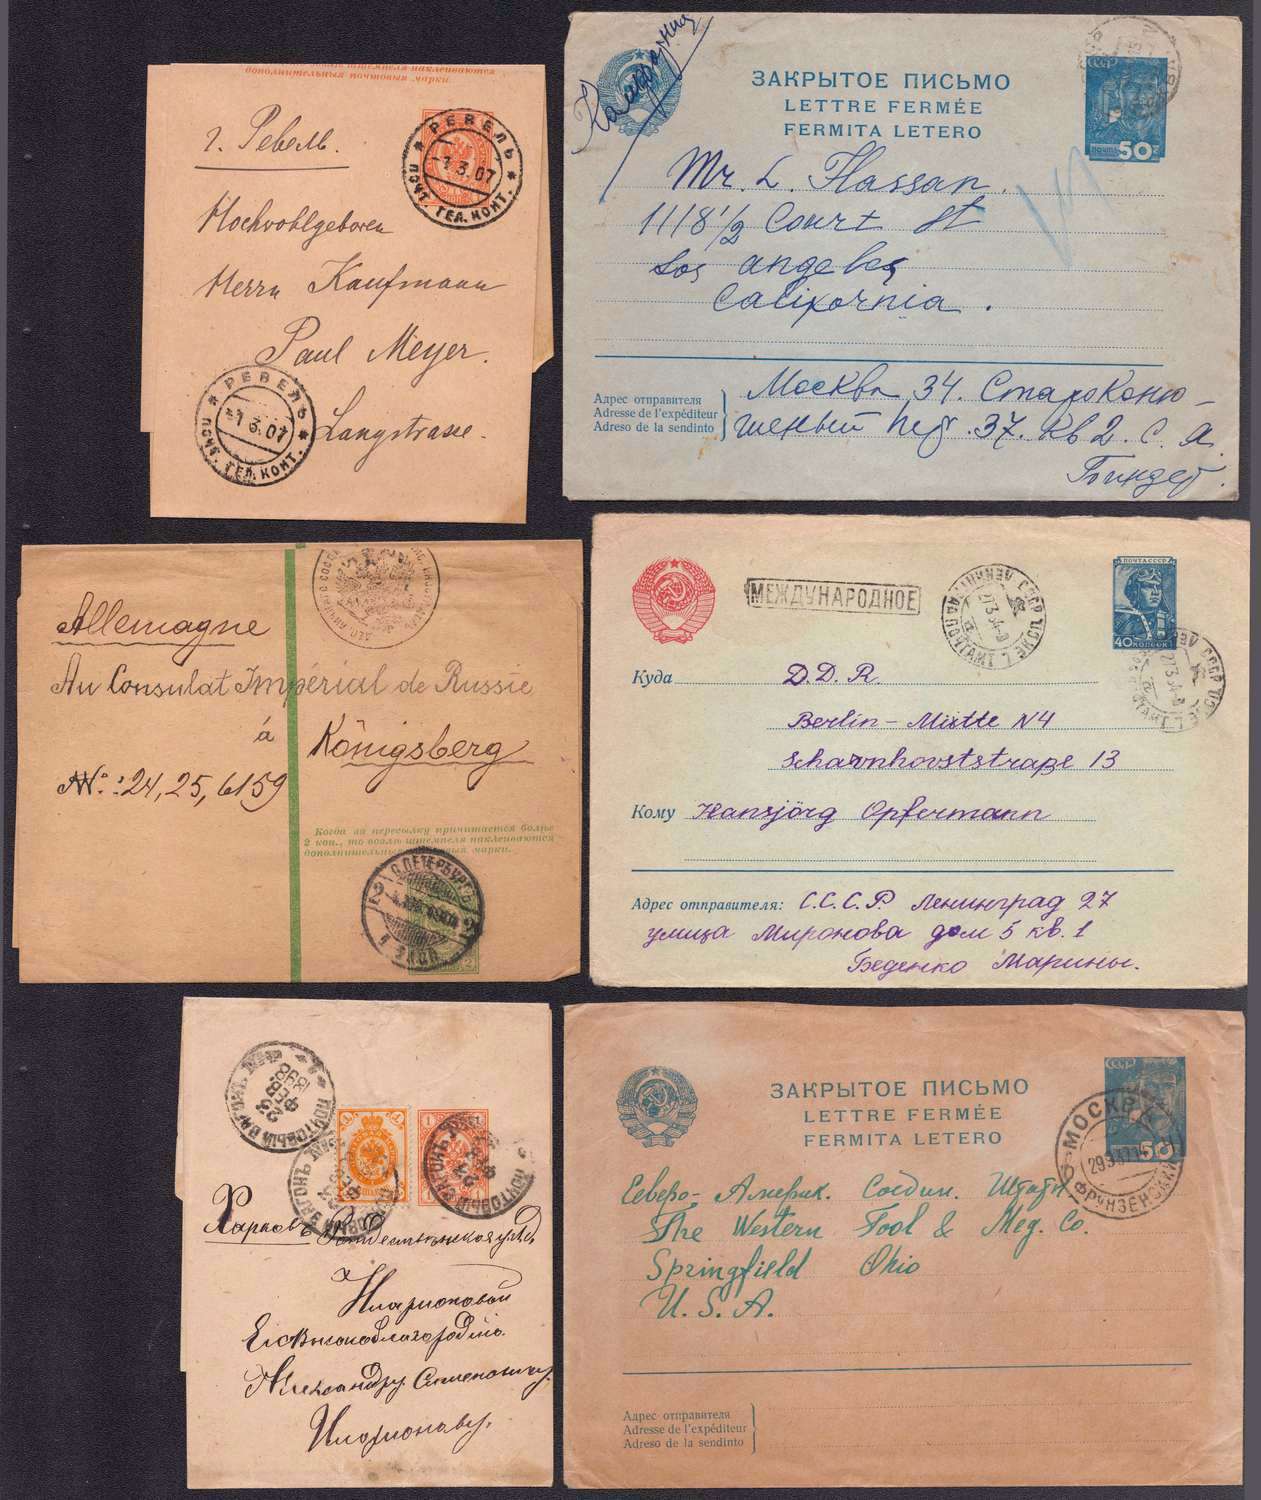 дополнительныя почтовыя марки.
г. Ревель.
Hochwohlgeboren
Herrn Kaufmann
Paul Meyer.
Langstrasse.
РЕВЕЛЬ
-1 3.07
ПОЧТ. ТЕЛ. КОНТ.
РЕВЕЛЬ
-1 3.07
ПОЧТ. ТЕЛ. КОНТ.
Калифорния
ЗАКРЫТОЕ ПИСЬМО
LETTRE FERMÉE
FERMITA LETERO
СССР
ПОЧТА 50
Mr. L. Hassan.
1118 1/2 Court St
Los Angeles
California.
Адрес отправителя
Adresse de l'expéditeur
Adreso de la sendinto
Москва 34. Староконю-
шеный пер. 37. кв 2. С. А.
Биндер.
Allemagne
Au Consulat Impérial de Russie
à
Königsberg
№: 24, 25, 6159
Когда за пересылку причитается болѣе
2 коп., то возлѣ штемпеля наклеиваются
дополнительныя почтовыя марки.
С.ПЕТЕРБУРГЪ
МЕЖДУНАРОДНОЕ
ЛЕНИНГРАД ПОЧТАМТ
СССР
27 3 54
ПОЧТА СССР
40 КОПЕЕК
Куда
D.D.R.
Berlin-Mitte N4
Scharnhorststraße 13
Кому Hansjörg Opfermann
Адрес отправителя: С.С.С.Р. Ленинград 27
улица Миронова дом 5 кв. 1
Беденко Марины.
ПОЧТОВЫЙ ВАГОНЪ
ПОЧТОВЫЙ ВАГОНЪ
Харьковъ
Иларионовой
Его Высокоблагородію
Александру Семеновичу
Иларионову.
ЗАКРЫТОЕ ПИСЬМО
LETTRE FERMÉE
FERMITA LETERO
СССР
50
МОСКВА
ФРУНЗЕНСКИЙ
Северо-Америк. Соедин. Штаты
The Western Tool & Meg. Co.
Springfield Ohio
U. S. A.
Адрес отправителя
Adresse de l'expéditeur
Adreso de la sendinto